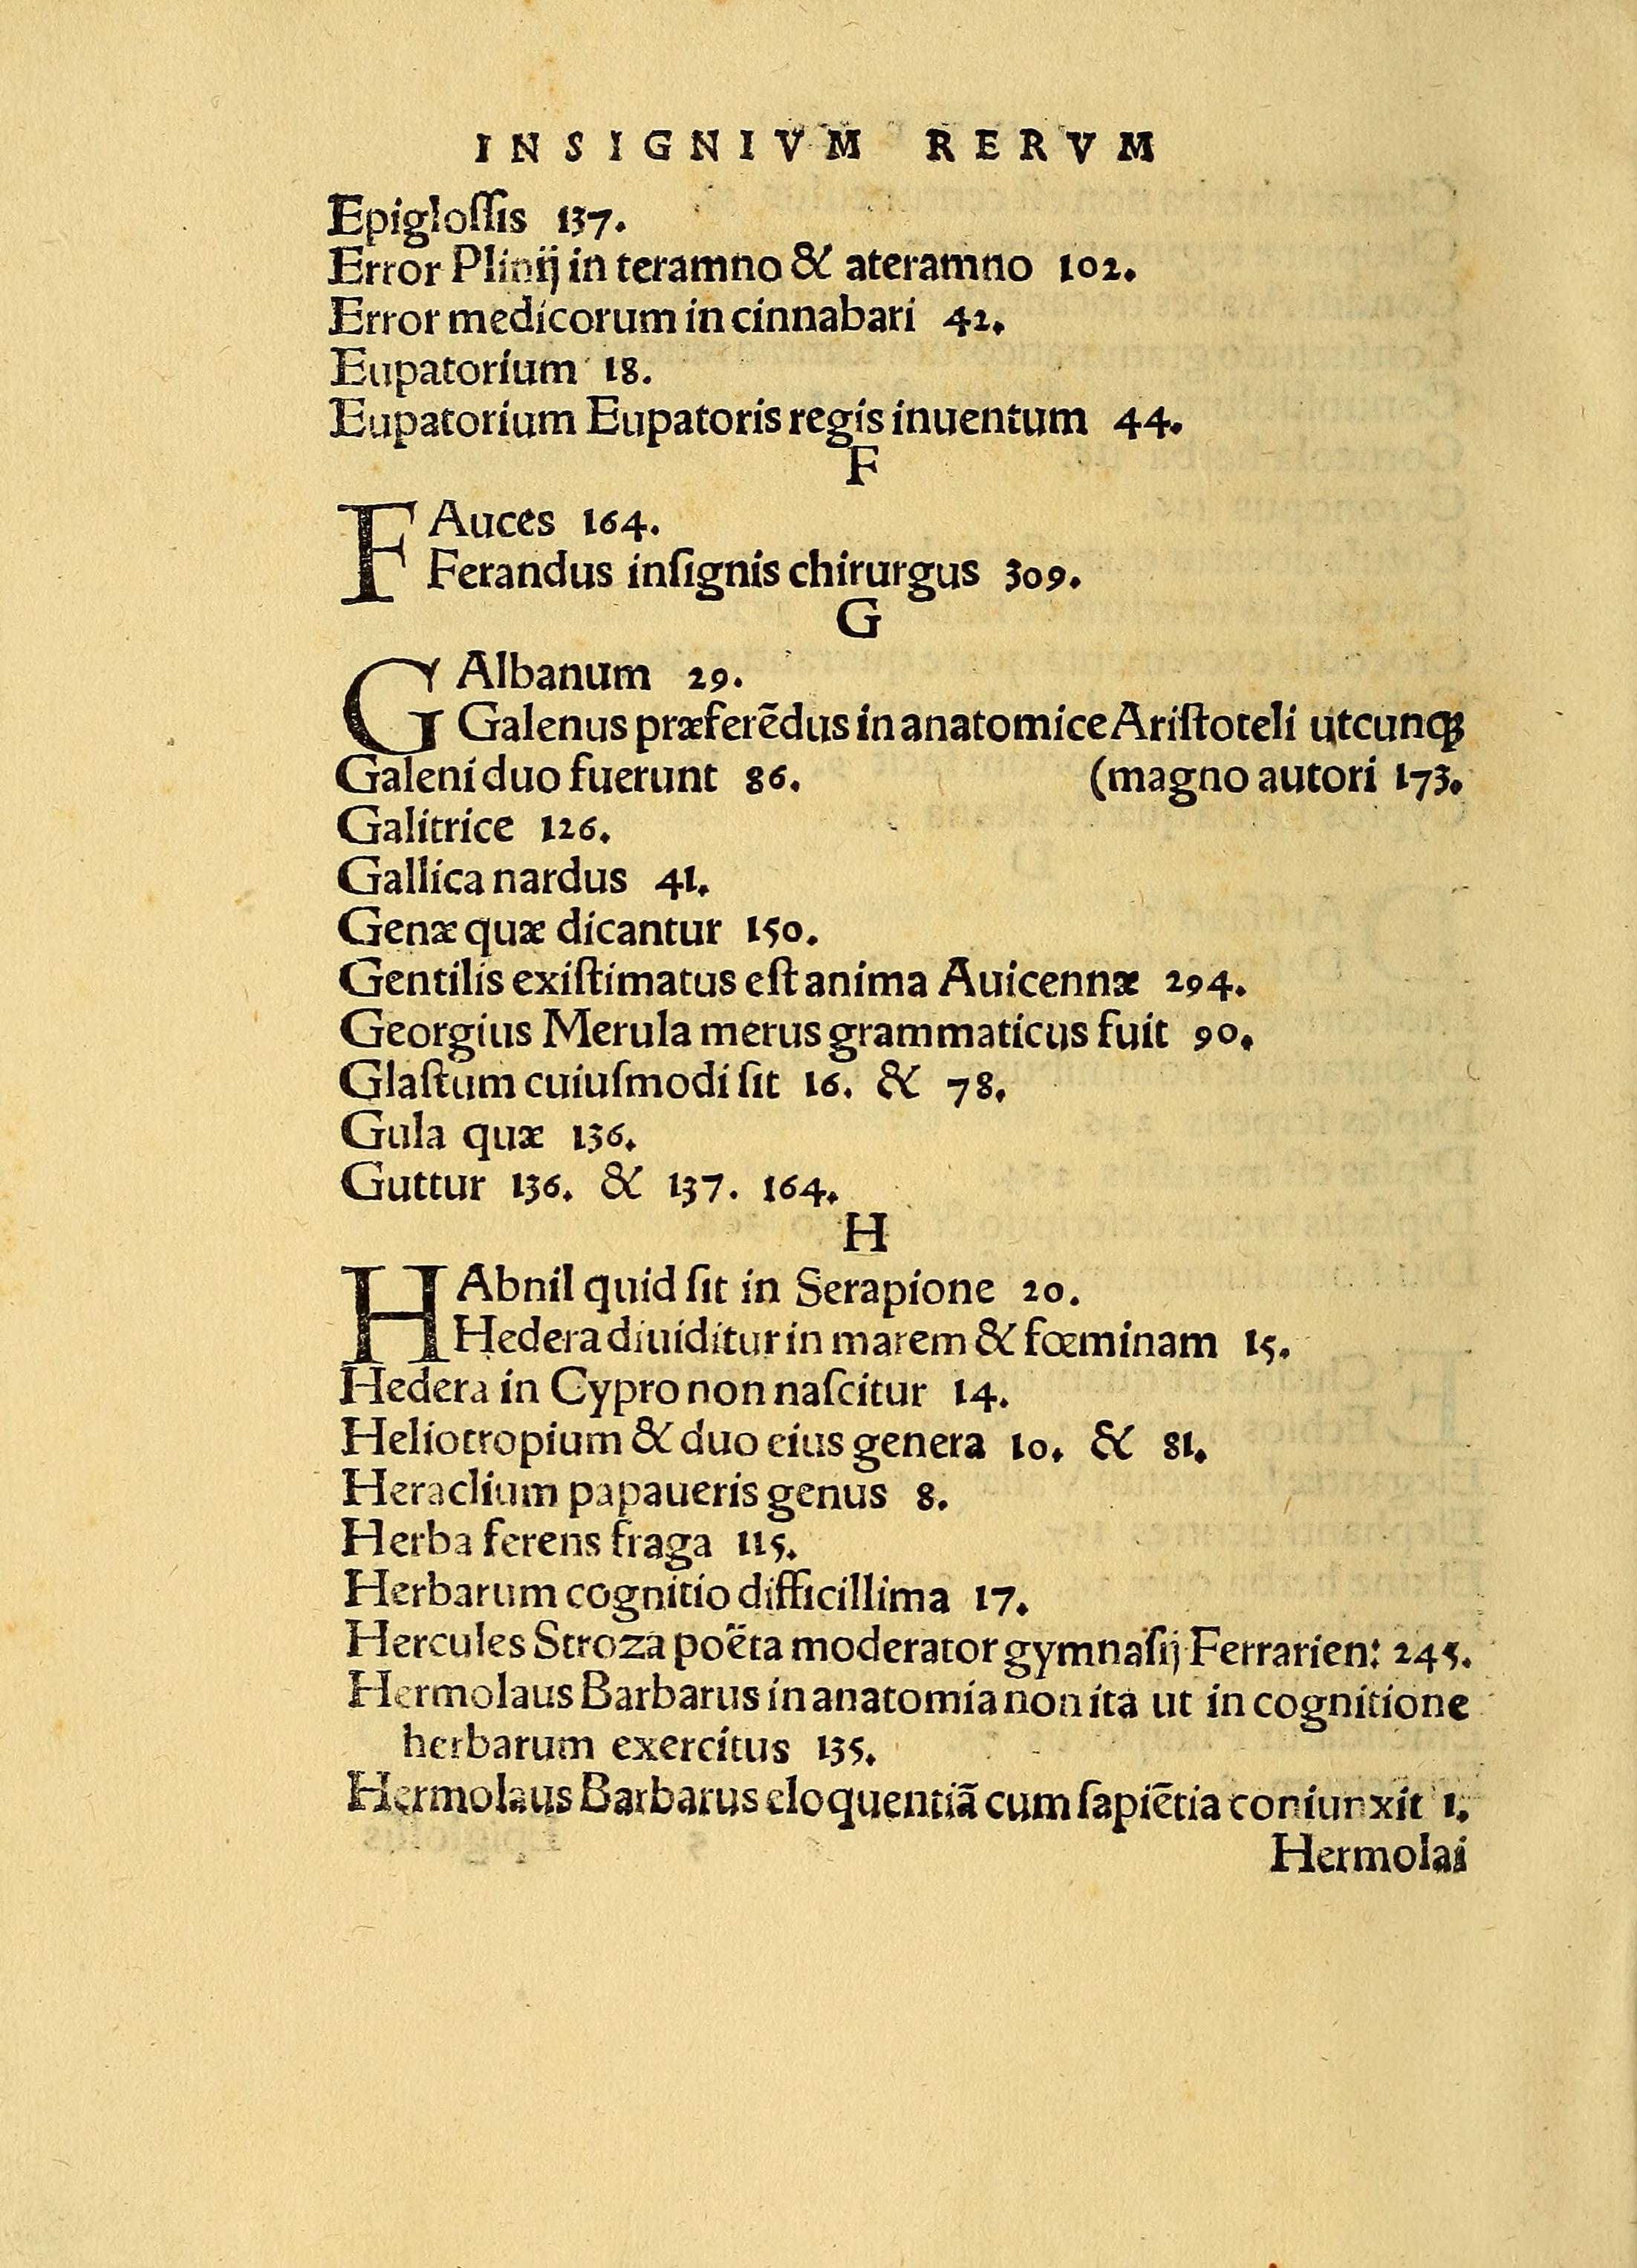 INSIGNIVM RERVM
Epigloſſis 137.
Error Plinij in teramno & ateramno 102.
Error medicorum in cinnabari 42.
Eupatorium 18.
Eupatorium Eupatoris regis inuentum 44.
F
FAuces 164.
Ferandus inſignis chirurgus 309.
G
GAlbanum 29.
Galenus præferẽdus in anatomice Ariſtoteli utcunqꝫ
Galeni duo fuerunt 86. (magno autori 173.
Galitrice 126.
Gallica nardus 41.
Genæ quæ dicantur 150.
Gentilis exiſtimatus eſt anima Auicennæ 294.
Georgius Merula merus grammaticus fuit 90.
Glaſtum cuiuſmodi ſit 16. & 78.
Gula quæ 136.
Guttur 136. & 137. 164.
H
HAbnil quid ſit in Serapione 20.
Hedera diuiditur in marem & fœminam 15.
Hedera in Cypro non naſcitur 14.
Heliotropium & duo eius genera 10. & 81.
Heraclium papaueris genus 8.
Herba ferens fraga 115.
Herbarum cognitio difficillima 17.
Hercules Stroza poëta moderator gymnaſij Ferrarien: 245.
Hermolaus Barbarus in anatomia non ita ut in cognitione
herbarum exercitus 135.
Hermolaus Barbarus eloquentiã cum ſapiẽtia coniunxit 1.
Hermolai